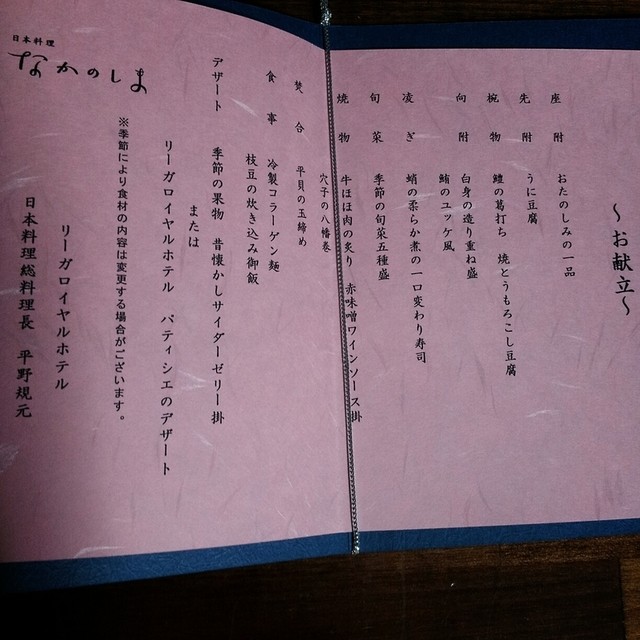 〜お献立〜
座附 おたのしみの一品
先附 うに豆腐
椀物 鱧の葛打ち 焼とうもろこし豆腐
向附 白身の造り重ね盛
鮪のユッケ風
凌ぎ 蛸の柔らか煮の一口変わり寿司
旬菜 季節の旬菜五種盛
焼物 牛ほほ肉の炙り 赤味噌ワインソース掛
穴子の八幡巻
焚合 平貝の玉締め
食事 冷製コラーゲン麺
枝豆の炊き込み御飯
デザート 季節の果物 昔懐かしサイダーゼリー掛
または
リーガロイヤルホテル パティシエのデザート
※季節により食材の内容は変更する場合がございます。
リーガロイヤルホテル
日本料理総料理長 平野規元
日本料理
なかのしま